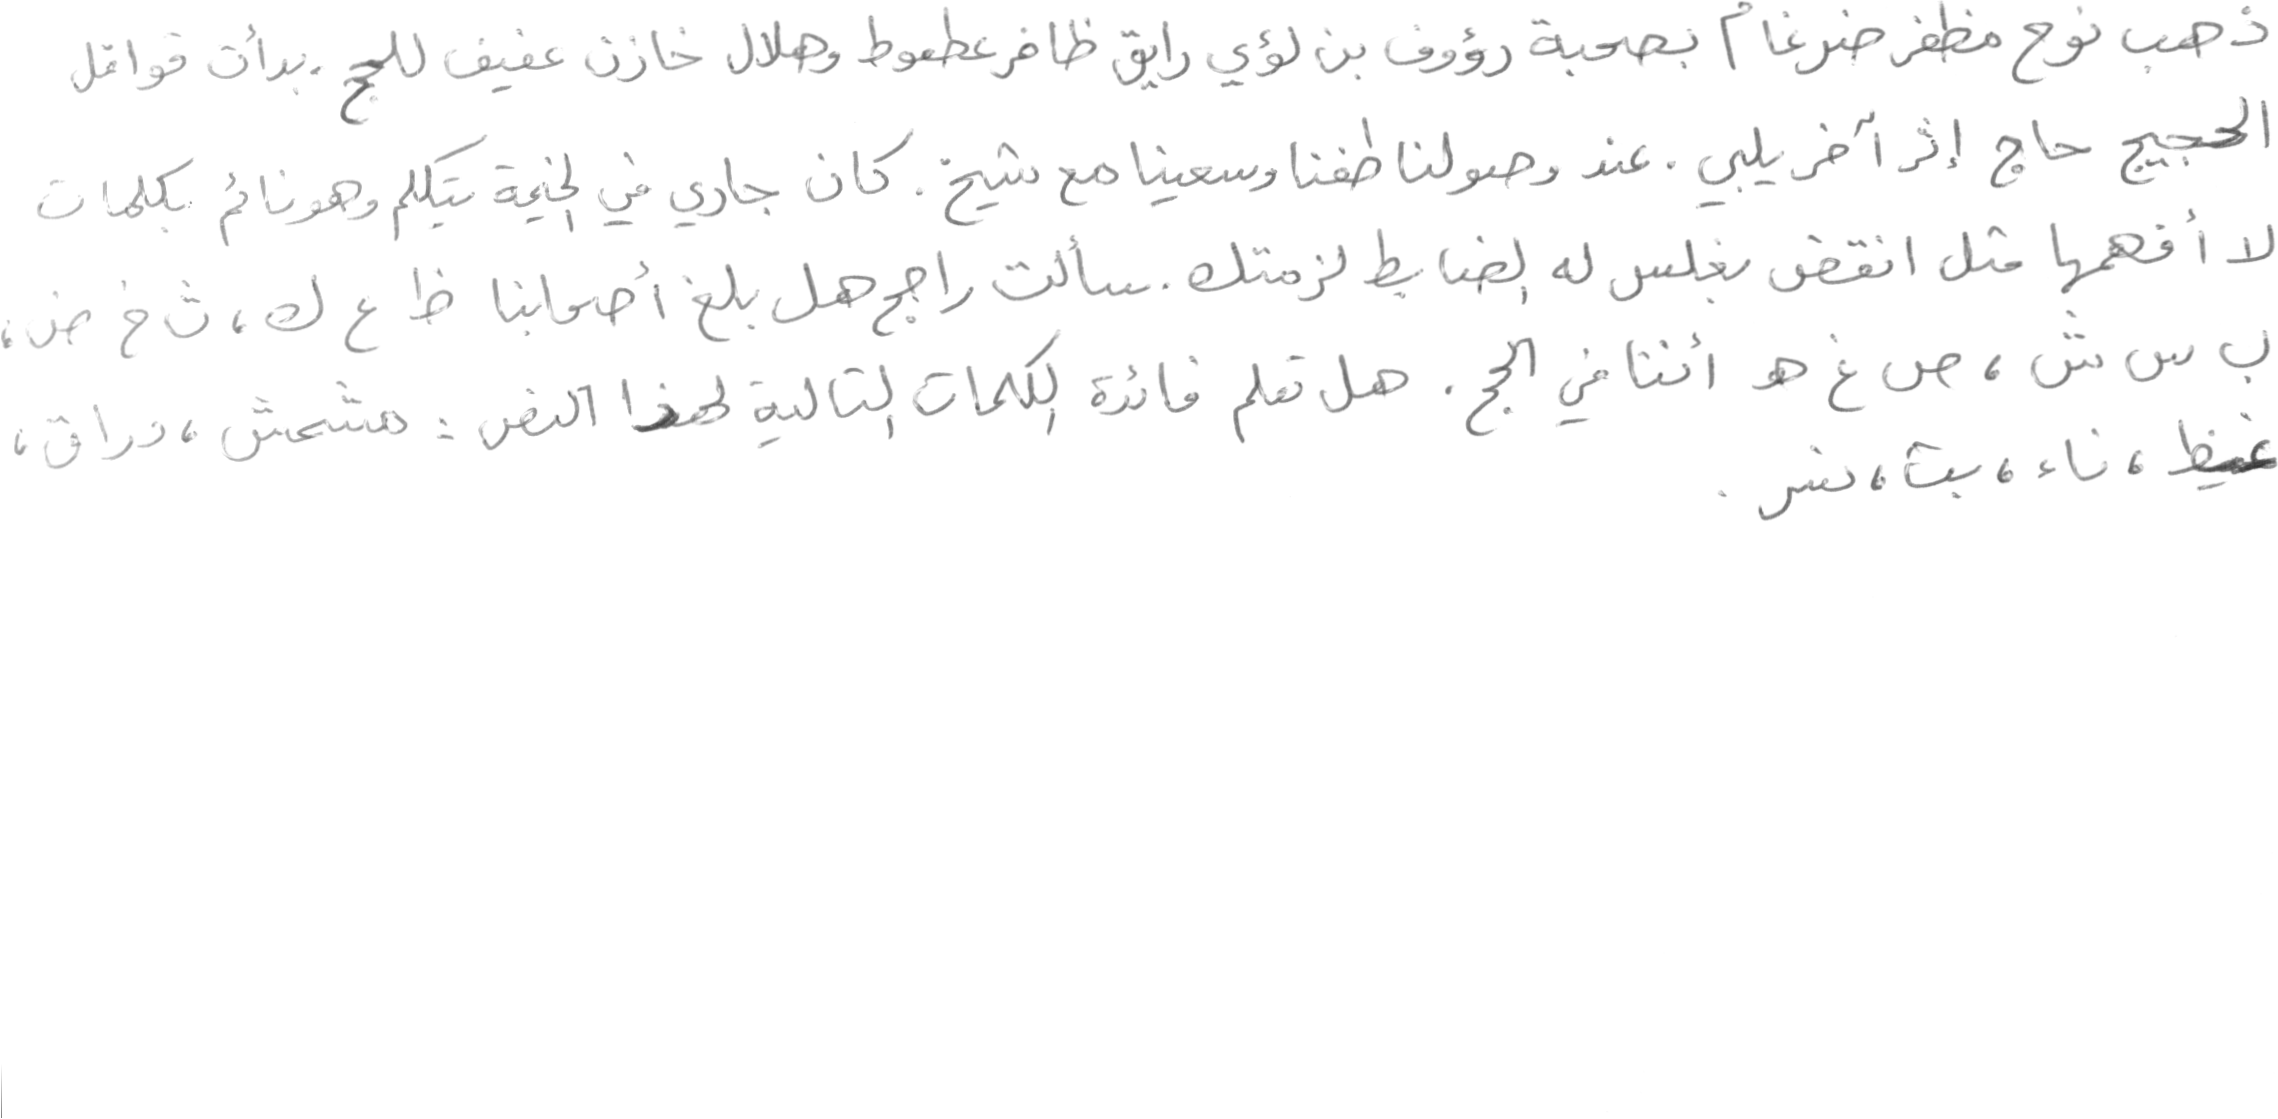 ذهب نوح مظفر ضرغام بصحبة رؤوف بن لؤي رايق ظافر عطعوط وهلال خازن عفيف للحج . بدأت قوافل
الحجيج حاج إثر آخر يلبي . عند وصولنا طفنا وسعينا مع شيخ . كان جاري في الخيمة يتكلم وهو نائم بكلمات
لا أفهمها مثل انقض بغلس له الضابط لزمتك . سألت راجح هل بلغ أصحابنا ظ ع ك ، ث خ ض ،
ب س ش ، ص غ ه أننا في الحج . هل تعلم فائدة الكلمات التالية لهذا النص : مشمش ، دراق ،
غيظ ، ناء ، بت ، نسر .